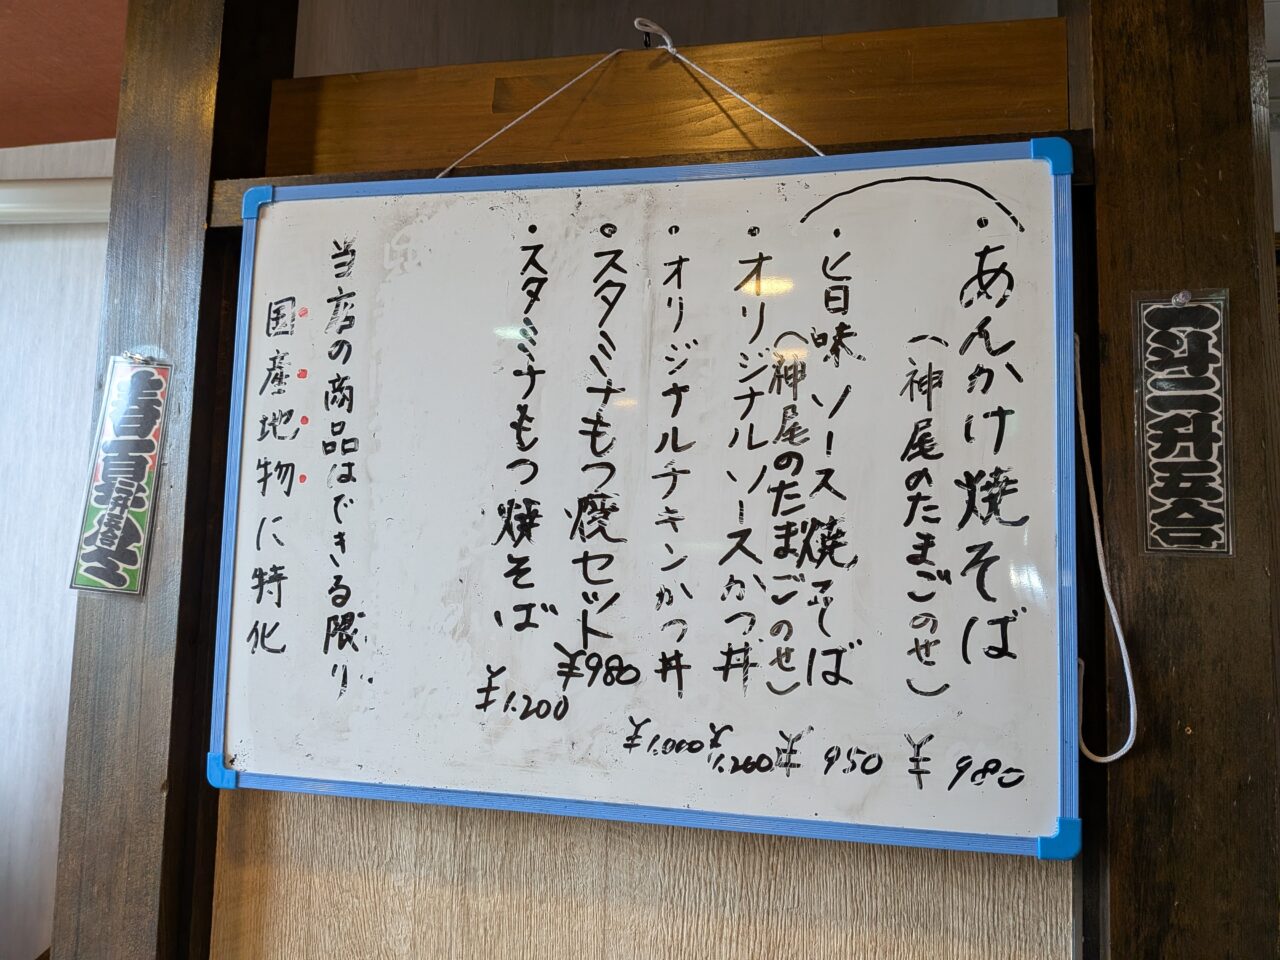 ・あんかけ焼そば
(神尾のたまごのせ)
¥980
・旨味ソース焼そば
(神尾のたまごのせ)
¥950
・オリジナルソースかつ丼
¥1,200
・オリジナルチキンかつ丼
¥1,000
・スタミナもつ焼セット
¥980
・スタミナもつ焼そば
¥1,200
当店の商品はできる限り
国産地物に特化
一斗二升五合